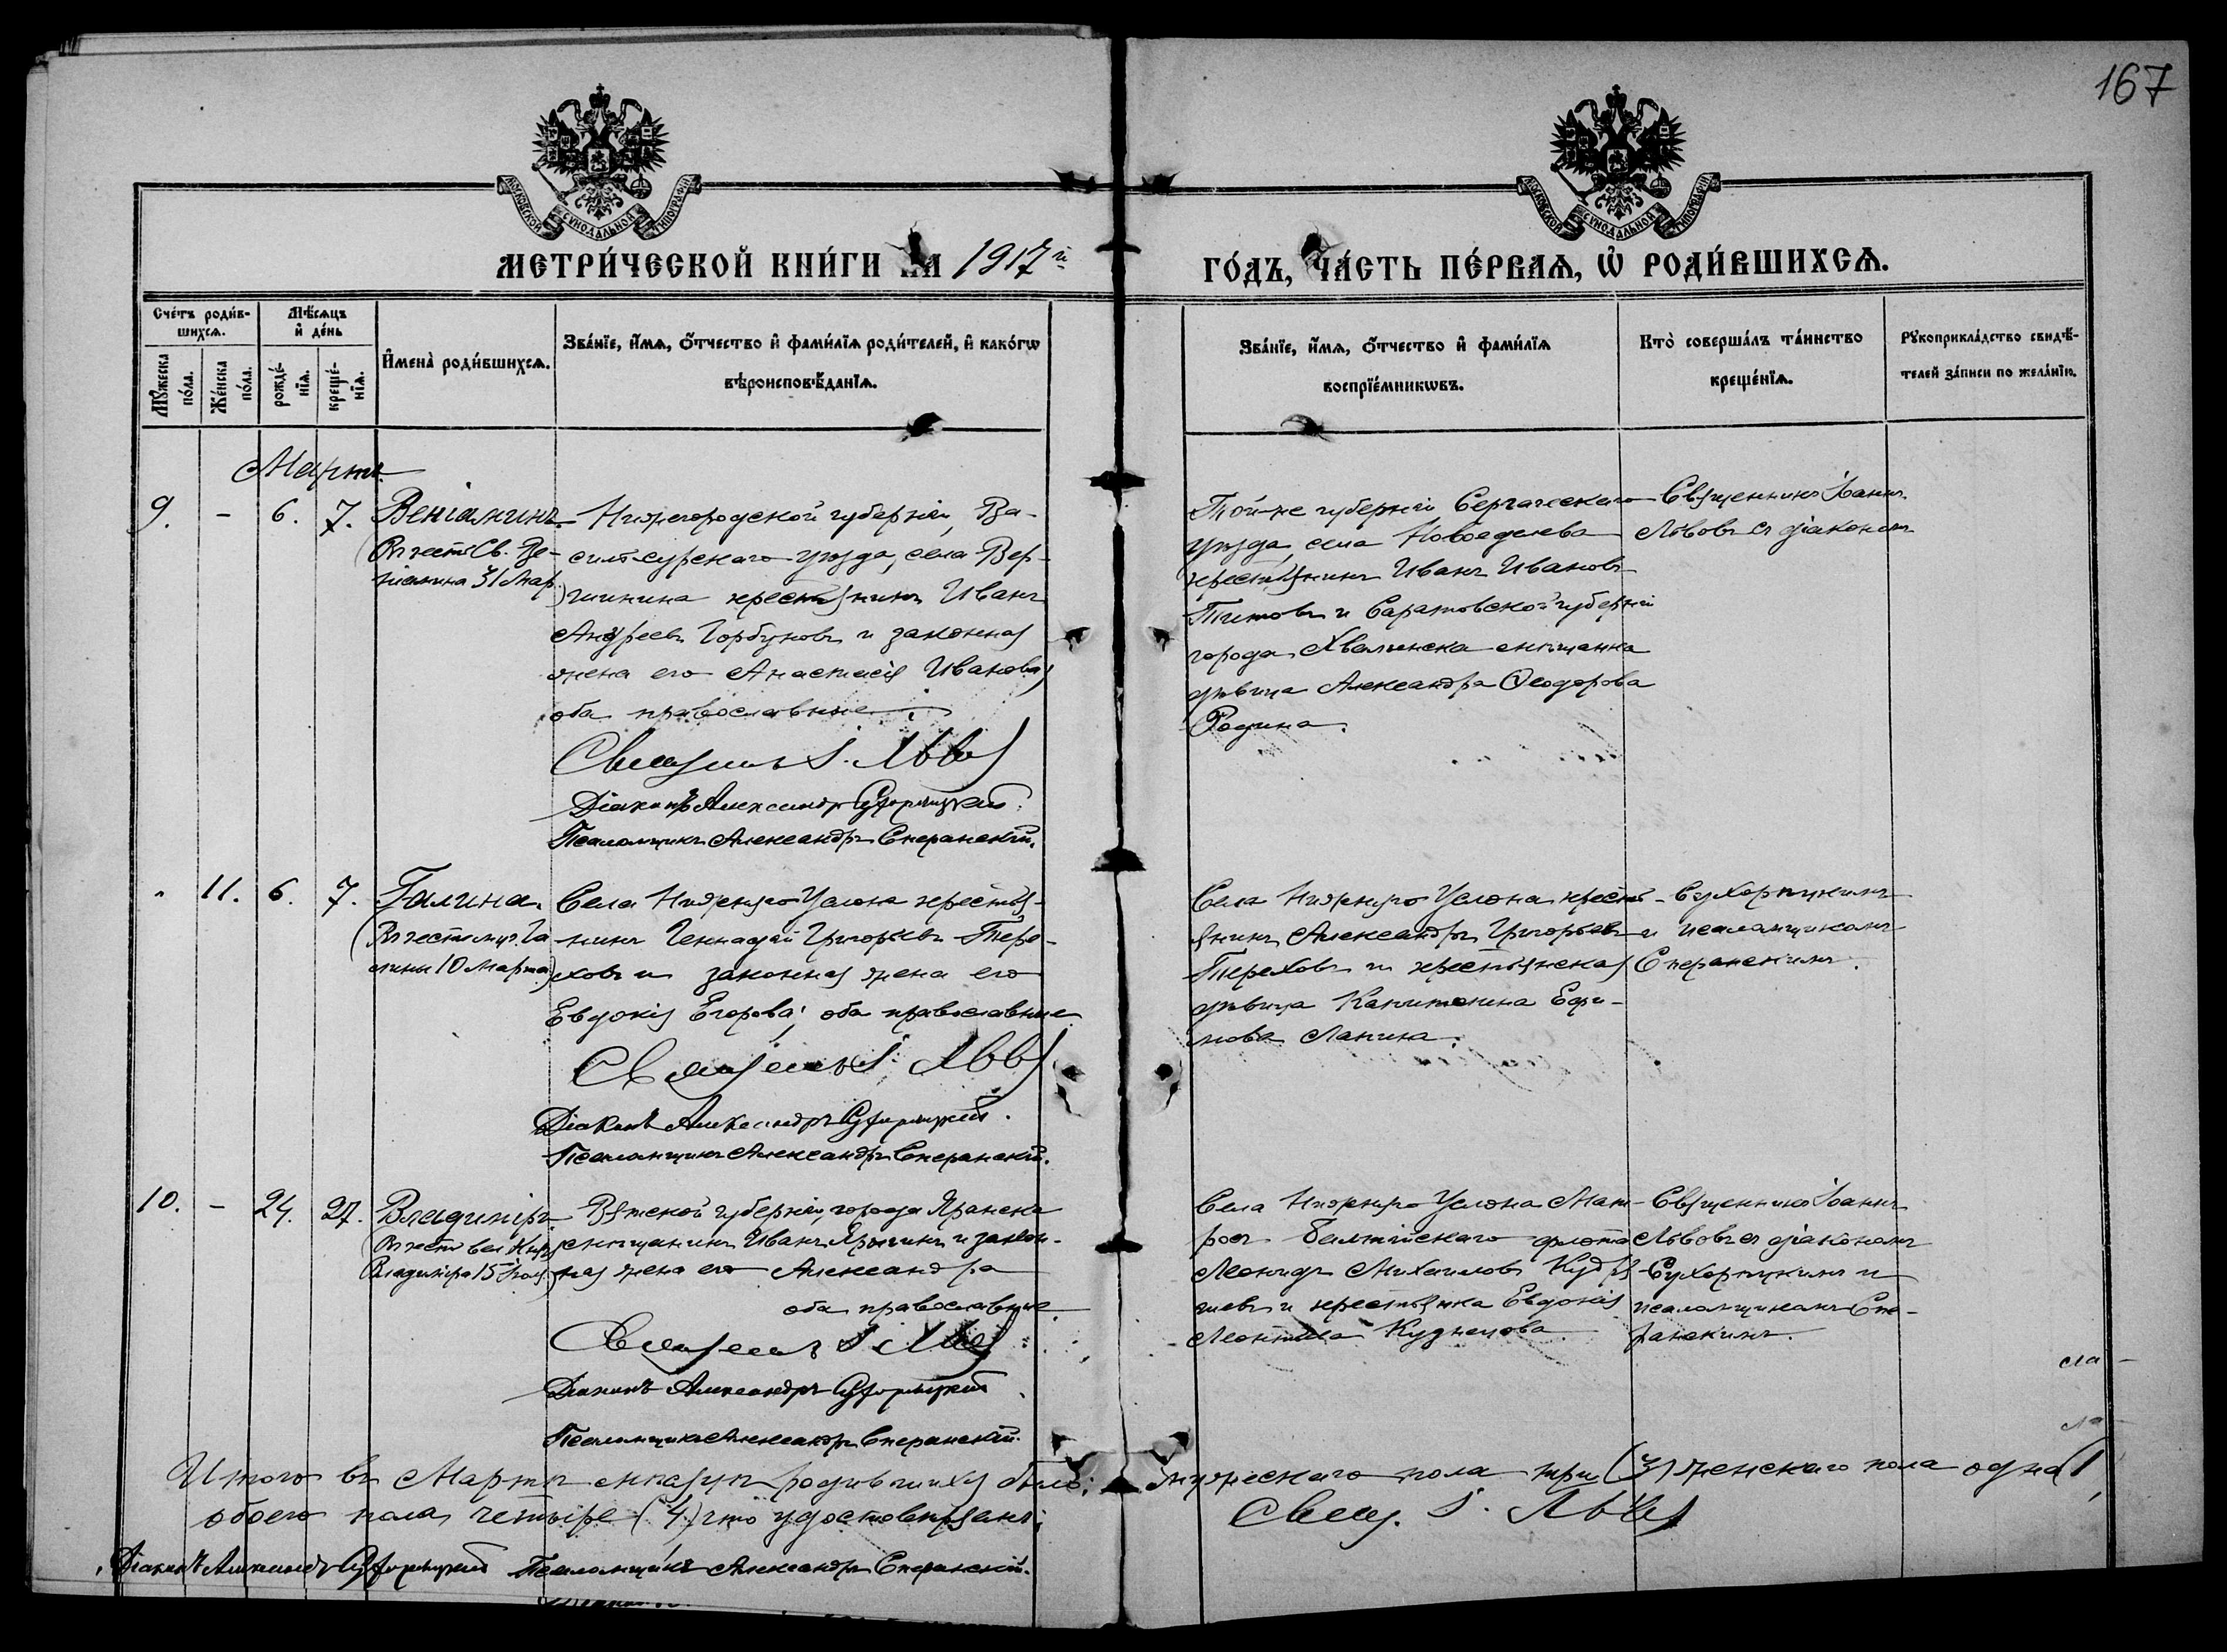 167
МОСКОВСКОЙ СУНОДАЛЬНОЙ ТИПОГРАФІИ
МОСКОВСКОЙ СУНОДАЛЬНОЙ ТИПОГРАФІИ
МЕТРИ́ЧЕСКОЙ КНИ́ГИ ЗА 1917й
ГО́ДЪ, ЧА́СТЬ ПЕ́РВАѦ, Ѡ҆ РОДИ́ВШИХСѦ.
Сче́тъ роди́в-
шихсѧ.
Мѣ́сѧцъ
и҆ де́нь
Мꙋ́жеска
по́ла.
Же́нска
по́ла.
рожде́-
нїѧ.
креще́-
нїѧ.
И҆мена̀ роди́вшихсѧ.
Зва́нїе, и҆́мѧ, ѻ҆́тчество и҆ фами́лїѧ роди́телей, и҆ како́гѡ
вѣроисповѣ́данїѧ.
Зва́нїе, и҆́мѧ, ѻ҆́тчество и҆ фами́лїѧ
воспрїе́мникѡвъ.
Кто̀ соверша́лъ та́инство
креще́нїѧ.
Рꙋкоприкла́дство свидѣ́-
телей за́писи по жела́нїю.
Мартъ
9. - 6. 7. Веніаминъ
(Въ честь Св. Ве-
ніамина 31 Мар.)
Нижегородской губерніи, Ва-
сильсурскаго уѣзда, села Вер-
шинина крестьянинъ Иванъ
Андреевъ Горбуновъ и законная
жена его Анастасія Иванова;
оба православные.
Священникъ І. Львовъ
Діаконъ Александръ
Псаломщикъ Александръ Сперанскій.
Той-же губерніи Сергачскаго
уѣзда, села
крестьянинъ Иванъ Ивановъ
Титовъ и Саратовской губерніи
города Хвалынска мѣщанка
дѣвица Александра Ѳеодорова
Родина.
Священникъ Іоаннъ
Львовъ съ діакономъ
" 11. 6. 7. Галина.
(Въ честь муч. Га-
лины 10 Марта)
Села Нижняго Услона крестья-
нинъ Геннадій Григорьевъ Тере-
ховъ и законная жена его
Евдокія Егорова; оба православные
Священникъ І. Львовъ
Діаконъ Александръ
Псаломщикъ Александръ Сперанскій.
Села Нижняго Услона кресть-
янинъ Александръ Григорьевъ
Тереховъ и крестьянская
дѣвица Капитолина Ефи-
мова Лапина.
Сухорукимъ
и псаломщикомъ
Сперанскимъ.
10. - 24. 27. Владиміръ
(Въ честь вел. Князя
Владиміра 15 Іюля)
Вятской губерніи, города Яранска
мѣщанинъ Иванъ и закон-
ная жена его Александра
оба православные
Священникъ І. Львовъ
Діаконъ Александръ
Псаломщикъ Александръ Сперанскій.
Села Нижняго Услона Мат-
росъ Балтійскаго флота
Леонидъ Михаиловъ Кудря-
шевъ и крестьянка Евдокія
Леонтьева Кузнецова
Священникъ Іоаннъ
Львовъ съ діакономъ
Сухорукимъ и
псаломщикомъ Спе-
ранскимъ.
Итого въ Мартѣ мѣсяцѣ родившихся было: мужескаго пола три (3) женскаго пола одна (1
обоего пола четыре (4) что удостовѣряемъ:
Свящ. І. Львовъ
Діаконъ Псаломщикъ Александръ Сперанскій.